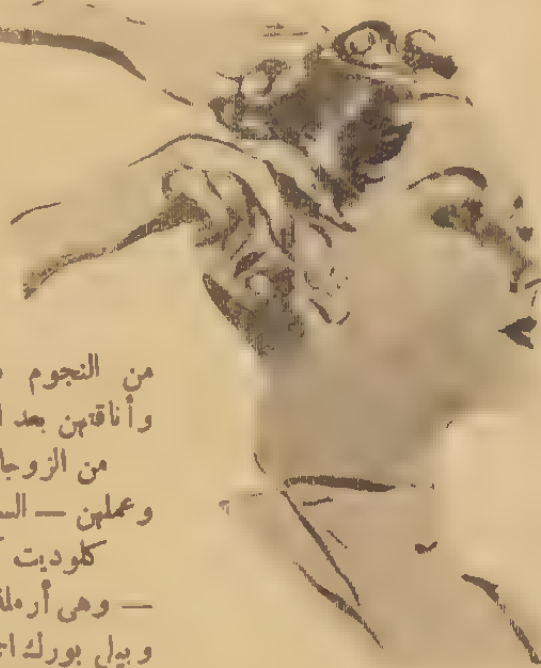 من النجوم
وأناقتهن بعد
من الزوجا
وعملهن — الس
كلوديت
— وهى أرملة
وبيل بورك اج